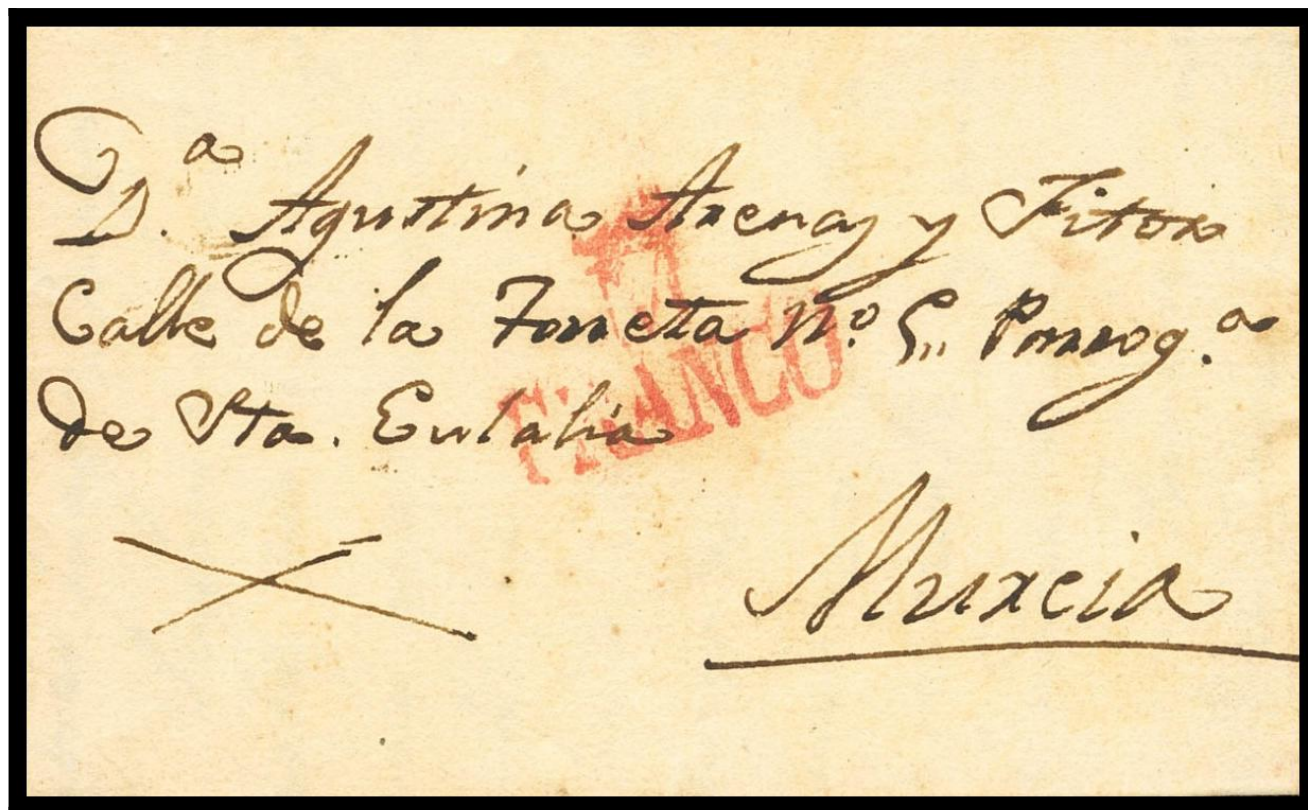 D.ª Agustina Arenas y Fiton
Calle de la Torreta nº. 5,, Parrog.ª
de Sta. Eulalia
FRANCO
Murcia